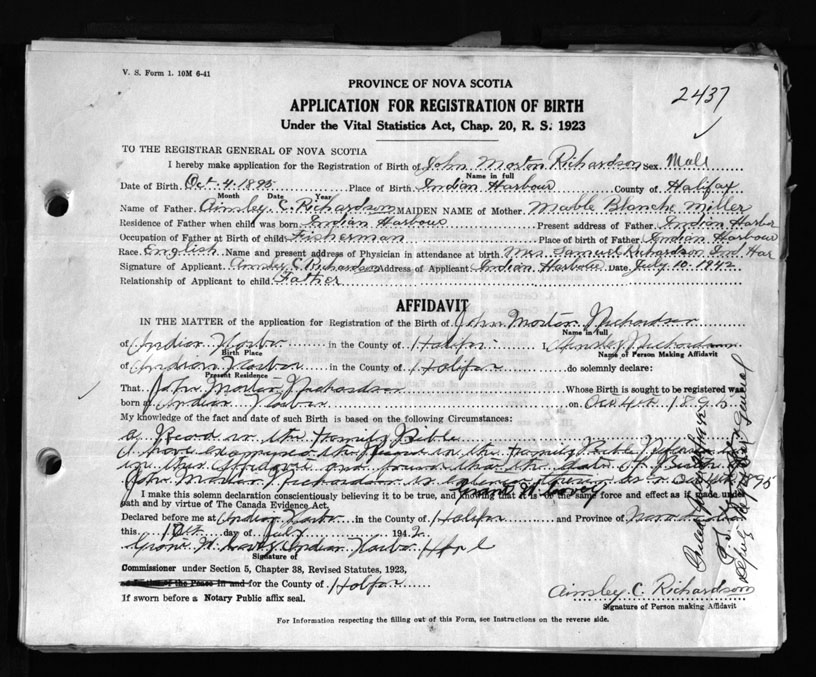 V. S. Form 1. 10M 6-41
PROVINCE OF NOVA SCOTIA
2437
APPLICATION FOR REGISTRATION OF BIRTH
Under the Vital Statistics Act, Chap. 20, R. S. 1923
TO THE REGISTRAR GENERAL OF NOVA SCOTIA
I hereby make application for the Registration of Birth of John Morton Richardson Sex Male
Name in full
Date of Birth Oct. 4. 1895 Place of Birth Indian Harbour County of Halifax
Month Date Year
Name of Father Ainsley C. Richardson MAIDEN NAME of Mother Mable Blanche Miller
Residence of Father when child was born Indian Harbour Present address of Father Indian Harbor
Occupation of Father at Birth of child Fisherman Place of birth of Father Indian Harbour
Race English Name and present address of Physician in attendance at birth Mrs Samuel Richardson Ind Har
Signature of Applicant Ainsley C Richardson Address of Applicant Indian Harbour Date July 10. 1942
Relationship of Applicant to child Father
AFFIDAVIT
IN THE MATTER of the application for Registration of the Birth of John Morton Richardson
Name in full
of Indian Harbor in the County of Halifax I Ainsley Richardson
Birth Place Name of Person Making Affidavit
of Indian Harbor in the County of Halifax do solemnly declare:
Present Residence
That John Morton Richardson Whose Birth is sought to be registered was
born at Indian Harbor on Oct 4th 1895
My knowledge of the fact and date of such Birth is based on the following Circumstances:
Record in the Family Bible
I have examined the Record in the Family Bible
in this Affidavit and found that the date of Birth of
John Morton Richardson is Oct 4th 1895
I make this solemn declaration conscientiously believing it to be true, and knowing that it is of the same force and effect as if made under
oath and by virtue of The Canada Evidence Act.
Declared before me at Indian Harbor in the County of Halifax and Province of Nova Scotia
this 10th day of July 1942
Indian Harbor Hfx
Signature of
Commissioner under Section 5, Chapter 38, Revised Statutes, 1923,
in and for the County of Halifax
If sworn before a Notary Public affix seal.
Ainsley C. Richardson
Signature of Person making Affidavit
For Information respecting the filling out of this Form, see Instructions on the reverse side.
Deputy Registrar General